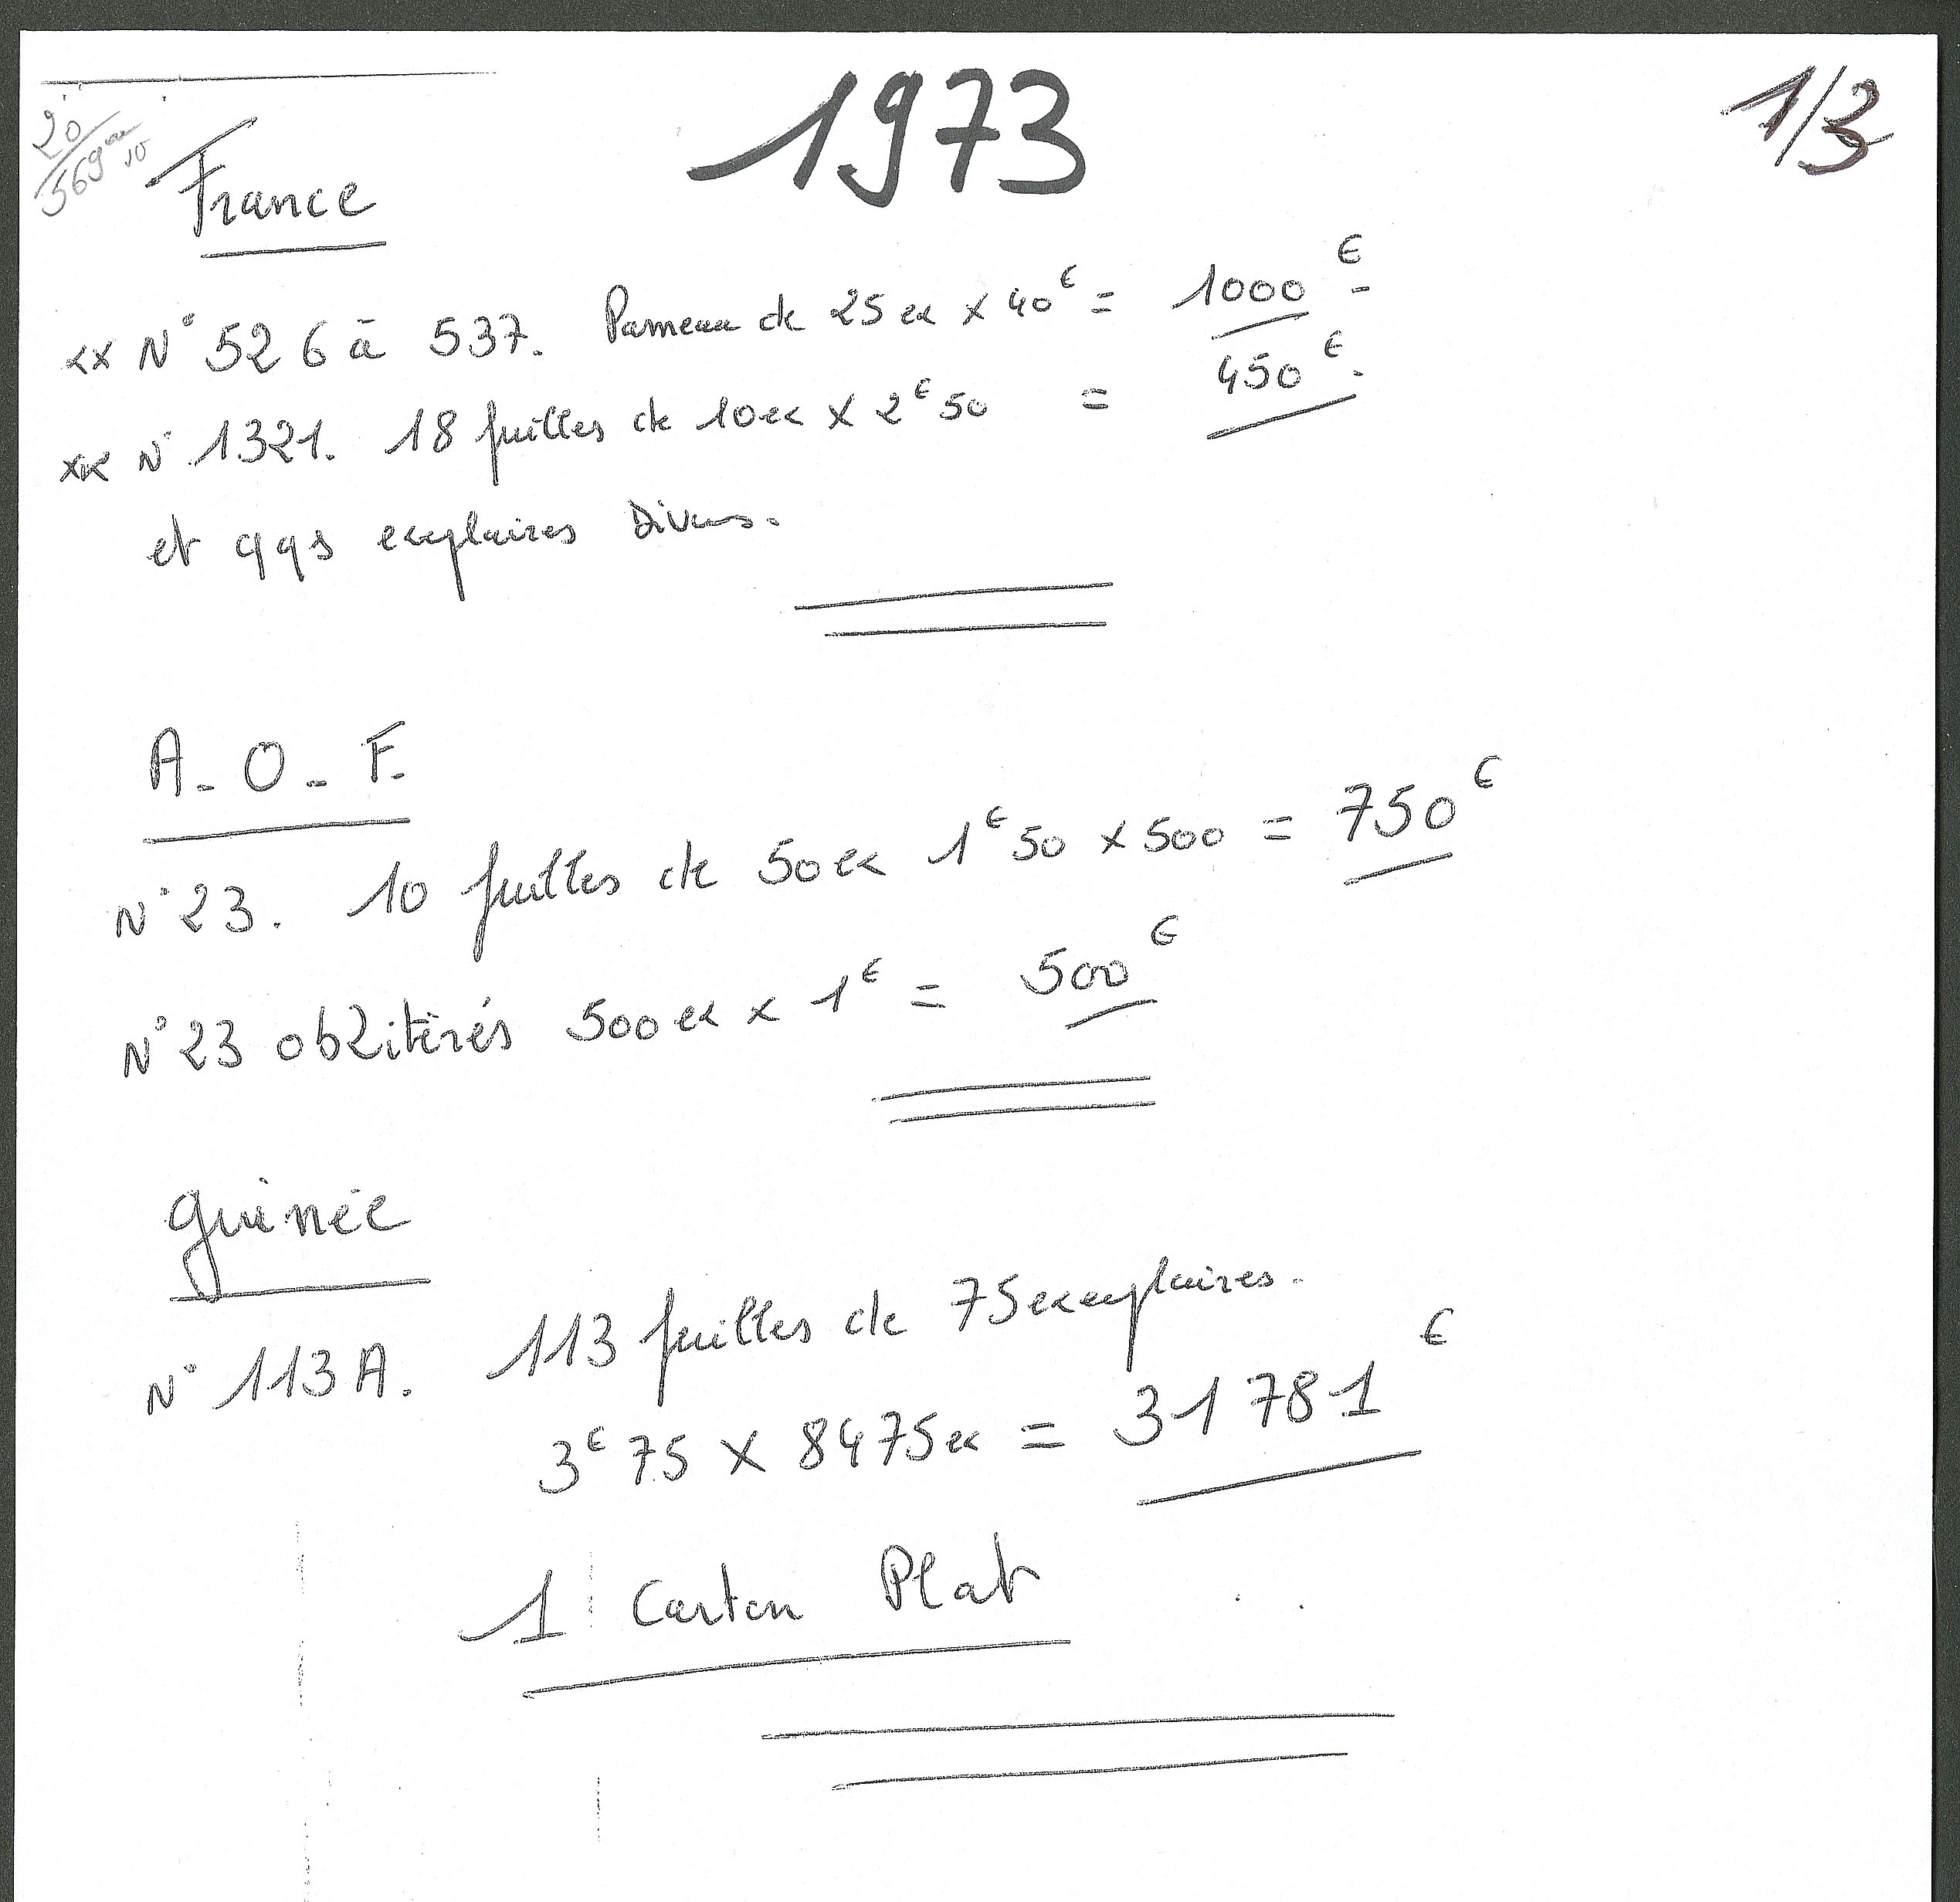 1973
1/3
20/569
France
xx N° 526 à 537. Panneau de 25 ex x 40€ = 1000€
xx N° 1321. 18 feuilles de 10 ex x 2€50 = 450€.
et qqs exemplaires Divers.
A.O.F.
N° 23. 10 feuilles de 50 ex 1€50 x 500 = 750€
N° 23 oblitérés 500 ex x 1€ = 500€
Guinée
N° 113A. 113 feuilles de 75 exemplaires.
3€75 x 8475 ex = 31 781€
1 Carton Plat